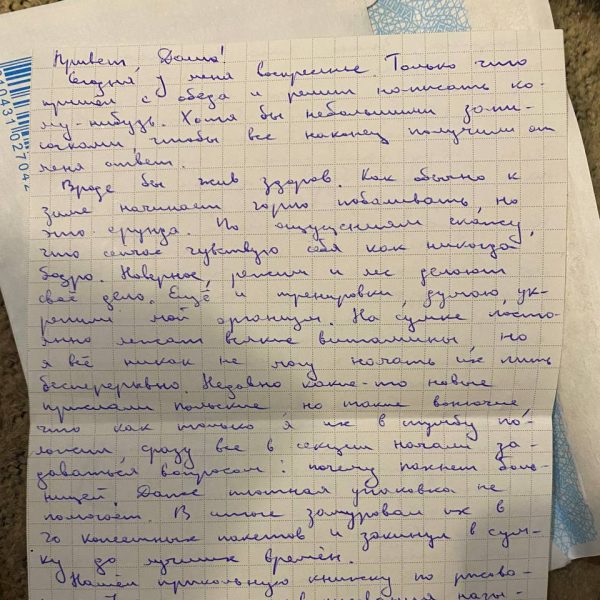 Привет, Даша!
Сегодня, у меня воскресенье. Только что
пришёл с обеда и решил написать ко-
му-нибудь. Хотя бы небольшими запи-
сочками, чтобы все наконец получили от
меня ответ.
Вроде бы жив здоров. Как обычно к
зиме начинает горло побаливать, но
это ерунда. По ощущениям скажу,
что сейчас чувствую себя как никогда
бодро. Наверное, режим и лес делают
своё дело. Ещё и тренировки, думаю, ук-
репили мой организм. На сумке посто-
янно лежат всякие витамины, но
я всё никак не могу начать их пить
беспрерывно. Недавно какие-то новые
прислали польские, но такие вонючие,
что как только я их в тумбу по-
ложил, сразу все в секции начали за-
даваться вопросом: почему пахнет боль-
ницей. Даже плотная упаковка не
помогает. В итоге замуровал их в
10 копеечных пакетов и закинул в сум-
ку до лучших времён.
Нашёл прикольную книжку по рисова-
910431027042